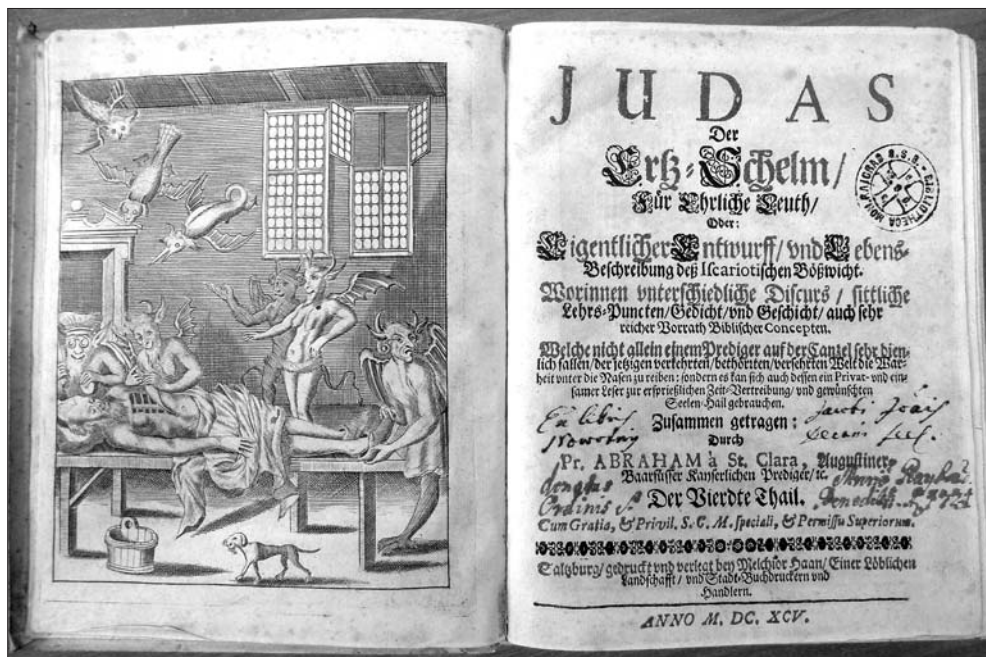 JUDAS
Der
Ertz-Schelm/
Für Ehrliche Leuth/
Oder:
Eigentlicher Entwurff/ vnd Lebens-
Beschreibung deß Iscariotischen Bößwicht.
Worinnen vnterschiedliche Discurs / sittliche
Lehrs-Puncten/Gedicht/vnd Geschicht/auch sehr
reicher Vorrath Biblischer Concepten.
Welche nicht allein einem Prediger auf der Cantzel sehr dien-
lich fallen/der jetzigen verkehrten/bethörten/versehrten Welt die War-
heit vnter die Nasen zu reiben: sondern es kan sich auch dessen ein Privat- vnd ein-
samer Leser zur ersprießlichen Zeit-Vertreibung/ vnd gewünschten
Seelen-Hail gebrauchen.
Ex libris
Zusammen getragen:
Durch
Pr. ABRAHAM à St. Clara, Augustiner
Baarfüsser Kayserlichen Prediger/ꝛc.
Ordinis S.
Der Vierdte Thail.
Cum Gratia, & Privil. S. C. M. speciali, & Permissu Superiorum.
Saltzburg/ gedruckt vnd verlegt bey Melchior Haan/ Einer Löblichen
Landschafft / vnd Stadt-Buchdruckern vnd
Handlern.
ANNO M. DC. XCV.